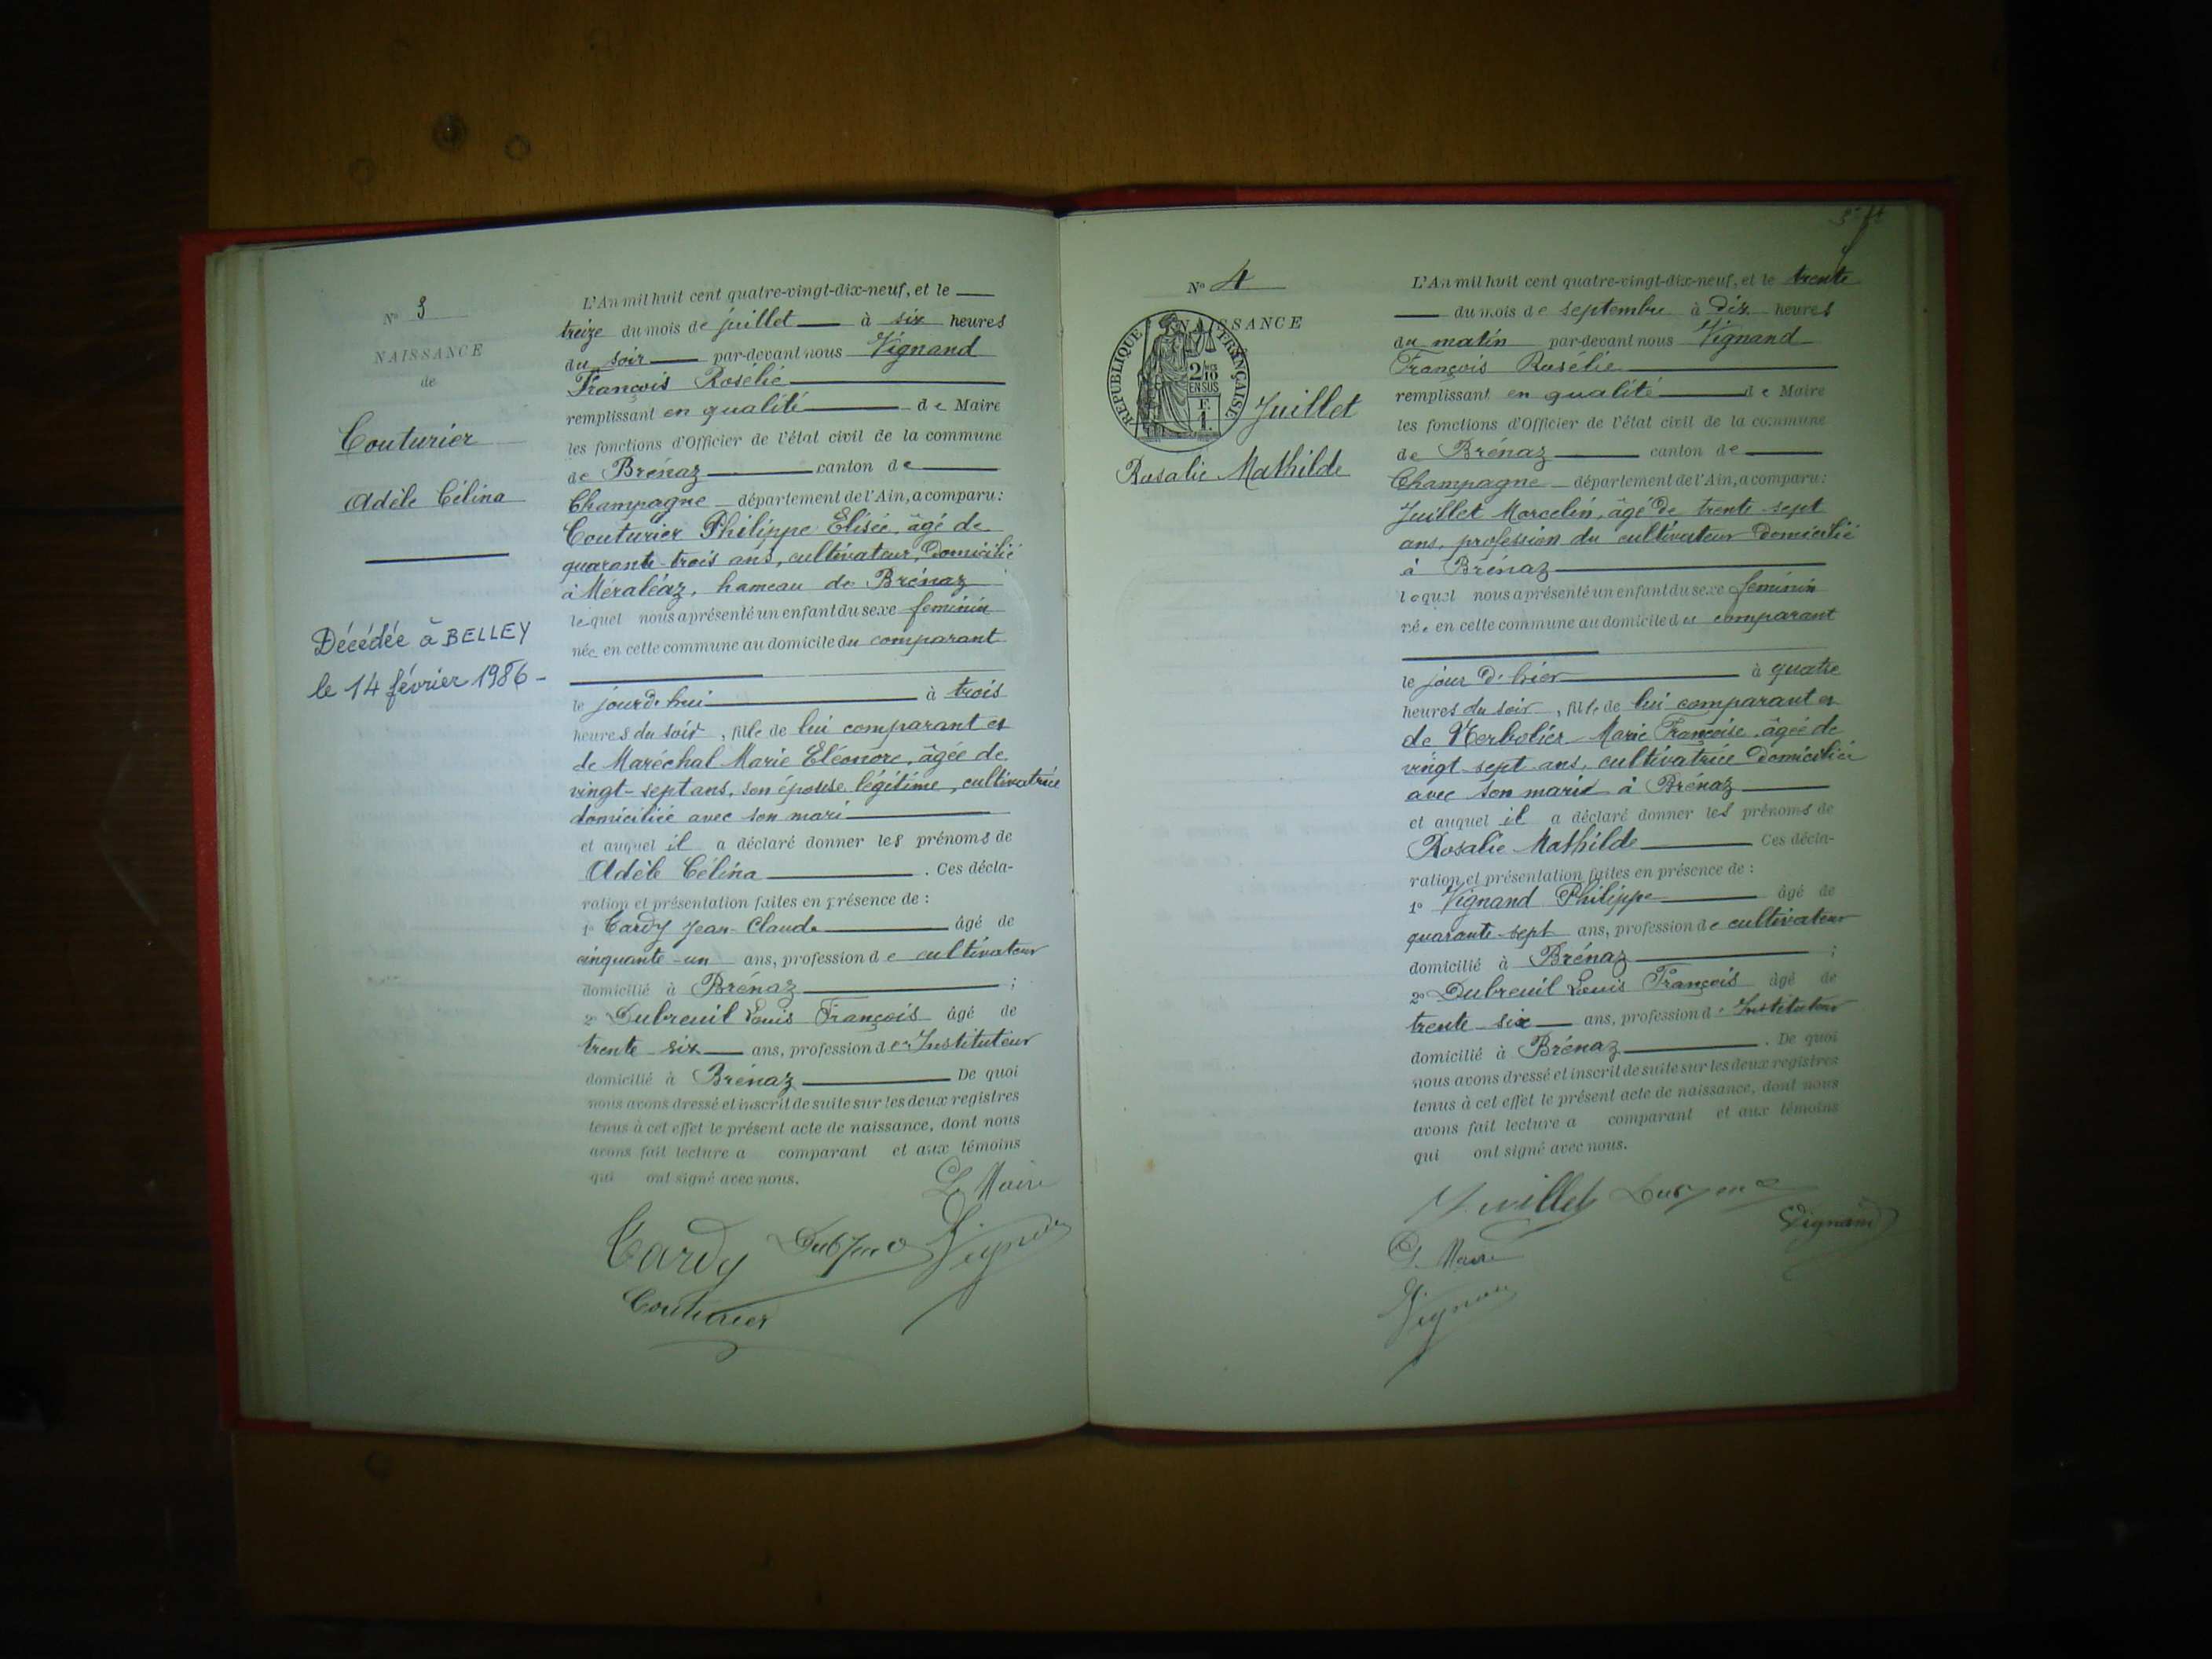 N° 3
NAISSANCE
de
Couturier
Adèle Célina
Décédée à BELLEY
le 14 février 1986 -
L'An mil huit cent quatre-vingt-dix-neuf, et le
treize du mois de juillet à six heures
du soir par-devant nous Vignand
François Rosélie
remplissant en qualité de Maire
les fonctions d'Officier de l'état civil de la commune
de Brénaz canton de
Champagne département de l'Ain, a comparu :
Couturier Philippe Elisée, âgé de
quarante-trois ans, cultivateur, domicilié
à Méraléaz, hameau de Brénaz
lequel nous a présenté un enfant du sexe feminin
née en cette commune au domicile du comparant
le jourd'hui à trois
heures du soir, fille de lui comparant et
de Maréchal Marie Eléonore, âgée de
vingt-sept ans, son épouse légitime, cultivatrice
domiciliée avec son mari
et auquel il a déclaré donner les prénoms de
Adèle Célina. Ces décla-
ration et présentation faites en présence de :
1° Tardy Jean-Claude âgé de
cinquante-un ans, profession de cultivateur
domicilié à Brénaz ;
2° Dubreuil Louis François âgé de
trente-six ans, profession d'Instituteur
domicilié à Brénaz De quoi
nous avons dressé et inscrit de suite sur les deux registres
tenus à cet effet le présent acte de naissance, dont nous
avons fait lecture a comparant et aux témoins
qui ont signé avec nous.
Le Maire
Tardy
Couturier
N° 4
NAISSANCE
REPUBLIQUE FRANÇAISE
2/10
EN SUS
F.
1.
Juillet
Rosalie Mathilde
L'An mil huit cent quatre-vingt-dix-neuf, et le trente
du mois de septembre à dix heures
du matin par-devant nous Vignand
François Rosélie
remplissant en qualité de Maire
les fonctions d'Officier de l'état civil de la commune
de Brénaz canton de
Champagne département de l'Ain, a comparu :
Juillet Marcelin, âgé de trente-sept
ans, profession du cultivateur domicilié
à Brénaz
lequel nous a présenté un enfant du sexe feminin
née en cette commune au domicile du comparant
le jour d'hier à quatre
heures du soir, fille de lui comparant et
de Marie Françoise, âgée de
vingt-sept ans, cultivatrice domiciliée
avec son marie à Brénaz
et auquel il a déclaré donner les prénoms de
Rosalie Mathilde Ces décla-
ration et présentation faites en présence de :
1° Vignand Philippe âgé de
quarante-sept ans, profession de cultivateur
domicilié à Brénaz ;
2° Dubreuil Louis François âgé de
trente-six ans, profession d'Instituteur
domicilié à Brénaz. De quoi
nous avons dressé et inscrit de suite sur les deux registres
tenus à cet effet le présent acte de naissance, dont nous
avons fait lecture a comparant et aux témoins
qui ont signé avec nous.
Juillet
Vignand
Le Maire